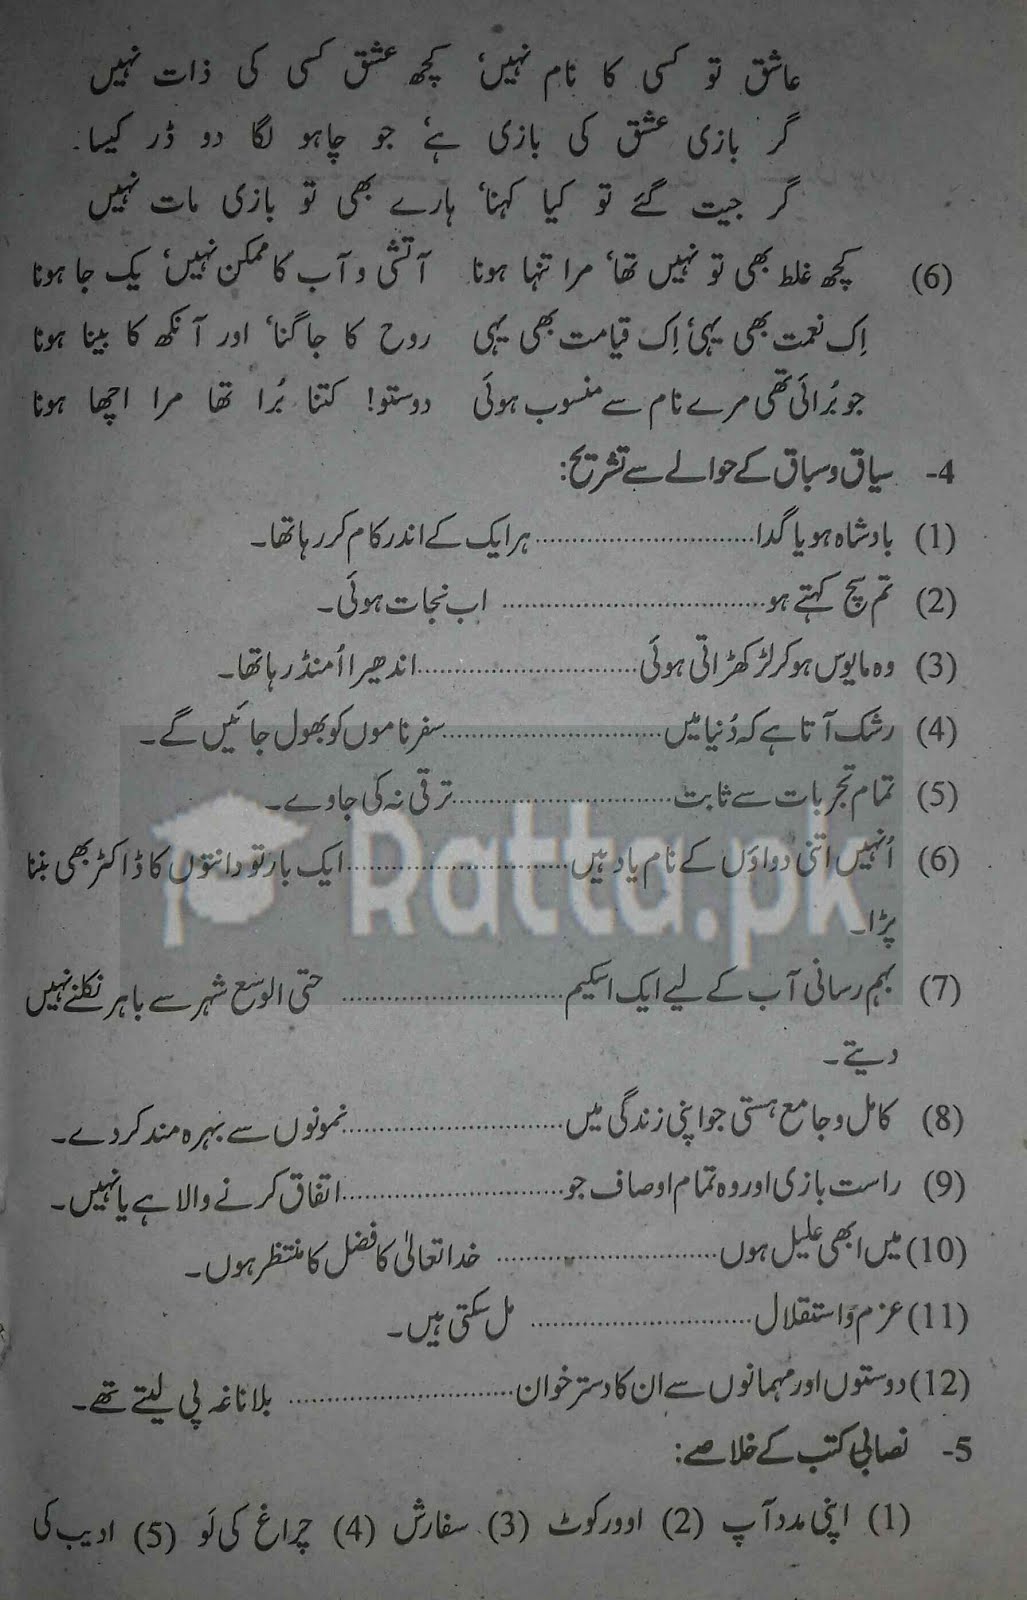 عاشق تو کسی کا نام نہیں، کچھ عشق کسی کی ذات نہیں
گر بازی عشق کی بازی ہے، جو چاہو لگا دو ڈر کیسا
گر جیت گئے تو کیا کہنا، ہارے بھی تو بازی مات نہیں
(6) کچھ غلط بھی تو نہیں تھا، مرا تنہا ہونا آتش و آب کا ممکن نہیں، یک جا ہونا
اِک نعمت بھی یہی، اِک قیامت بھی یہی روح کا جاگنا، اور آنکھ کا بینا ہونا
جو بُرائی تھی مرے نام سے منسوب ہوئی دوستو! کتنا بُرا تھا مرا اچھا ہونا
4- سیاق و سباق کے حوالے سے تشریح:
(1) بادشاہ ہو یا گدا............................ہر ایک کے اندر کام کر رہا تھا۔
(2) تم سچ کہتے ہو............................ اب نجات ہوئی۔
(3) وہ مایوس ہو کر لڑکھڑاتی ہوئی............................اندھیرا اُمنڈ رہا تھا۔
(4) رشک آتا ہے کہ دُنیا میں............................سفرناموں کو بھول جائیں گے۔
(5) تمام تجربات سے ثابت............................ترقی نہ کی جاوے۔
(6) اُنہیں اتنی دواؤں کے نام یاد ہیں............................ایک بار تو دانتوں کا ڈاکٹر بھی بننا
پڑا۔
(7) بہم رسانی آب کے لیے ایک اسکیم............................ حتی الوسع شہر سے باہر نکلنے نہیں
دیتے۔
(8) کامل و جامع ہستی جو اپنی زندگی میں............................نمونوں سے بہرہ مند کر دے۔
(9) راست بازی اور وہ تمام اوصاف جو............................اتفاق کرنے والا ہے یا نہیں۔
(10) میں ابھی علیل ہوں............................ خدا تعالیٰ کا فضل کا منتظر ہوں۔
(11) عزم و استقلال............................ مل سکتی ہیں۔
(12) دوستوں اور مہمانوں سے ان کا دسترخوان............................ بلا ناغہ پی لیتے تھے۔
5- نصابی کتب کے خلاصے:
(1) اپنی مدد آپ (2) اوورکوٹ (3) سفارش (4) چراغ کی لَو (5) ادیب کی
Ratta.pk